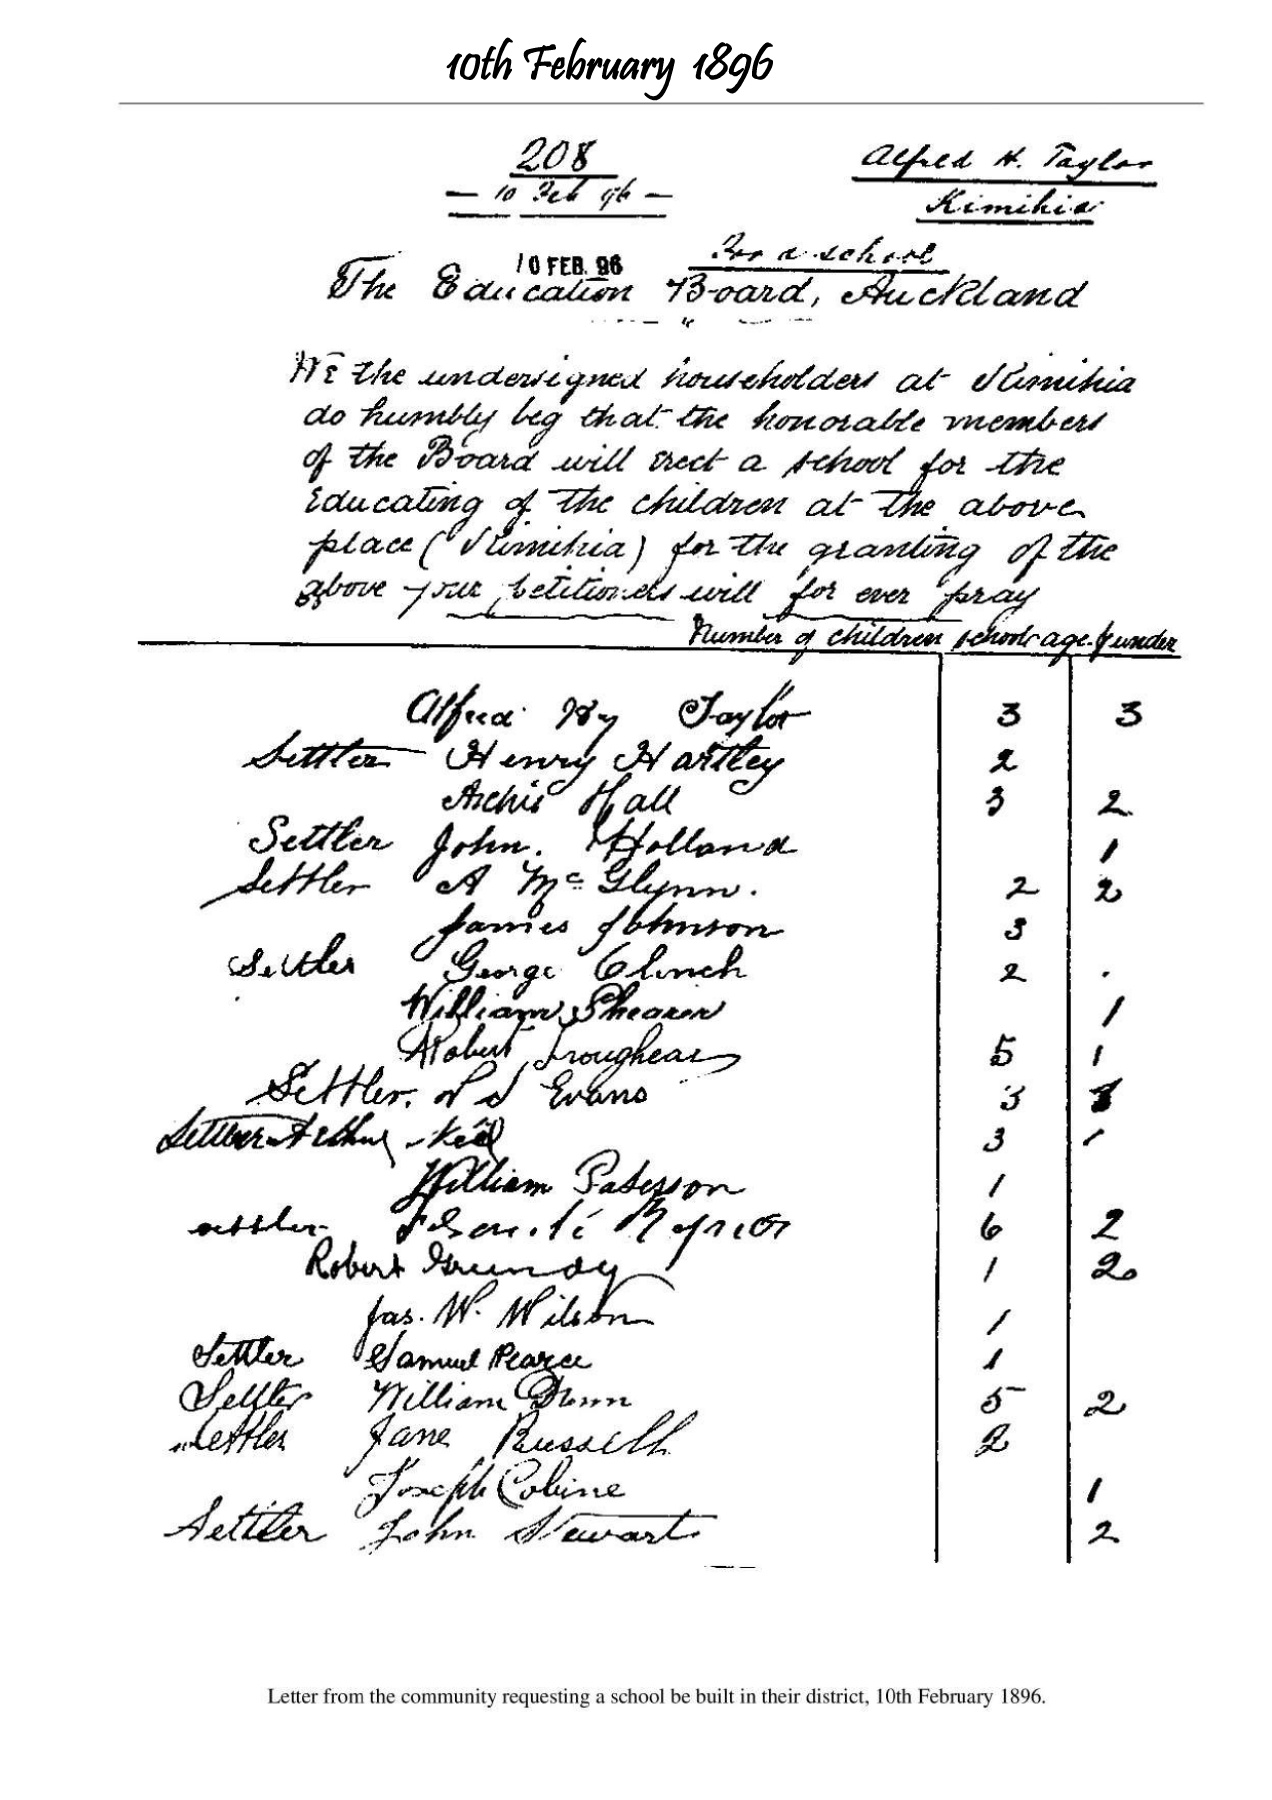 10th February 1896
208
Alfred H. Taylor
— 10 Feb 96 —
Kimihia
For a school
10 FEB. 96
The Education Board, Auckland
We the undersigned householders at Kimihia
do humbly beg that the honorable members
of the Board will erect a school for the
Educating of the children at the above
place (Kimihia) for the granting of the
above your petitioners will for ever pray
Number of children school age & under
Alfred Hy Taylor 3 3
Settler Henry Hartley 2
Archie Hall 3 2
Settler John. Holland 1
Settler A McGlynn. 2 2
James Johnson 3
Settler George Clinch 2
William Shearer 1
Robert Troughear 5 1
Settler. Evans 3
Settler Arthur 3 1
William Paterson 1
settler 6 2
Robert Grundy 1 2
Jas. W. Wilson 1
Settler Samuel Pearce 1
Settler William Dunn 5 2
settler Jane Russell 2
Joseph Cobine 1
Settler John Stewart 2
Letter from the community requesting a school be built in their district, 10th February 1896.